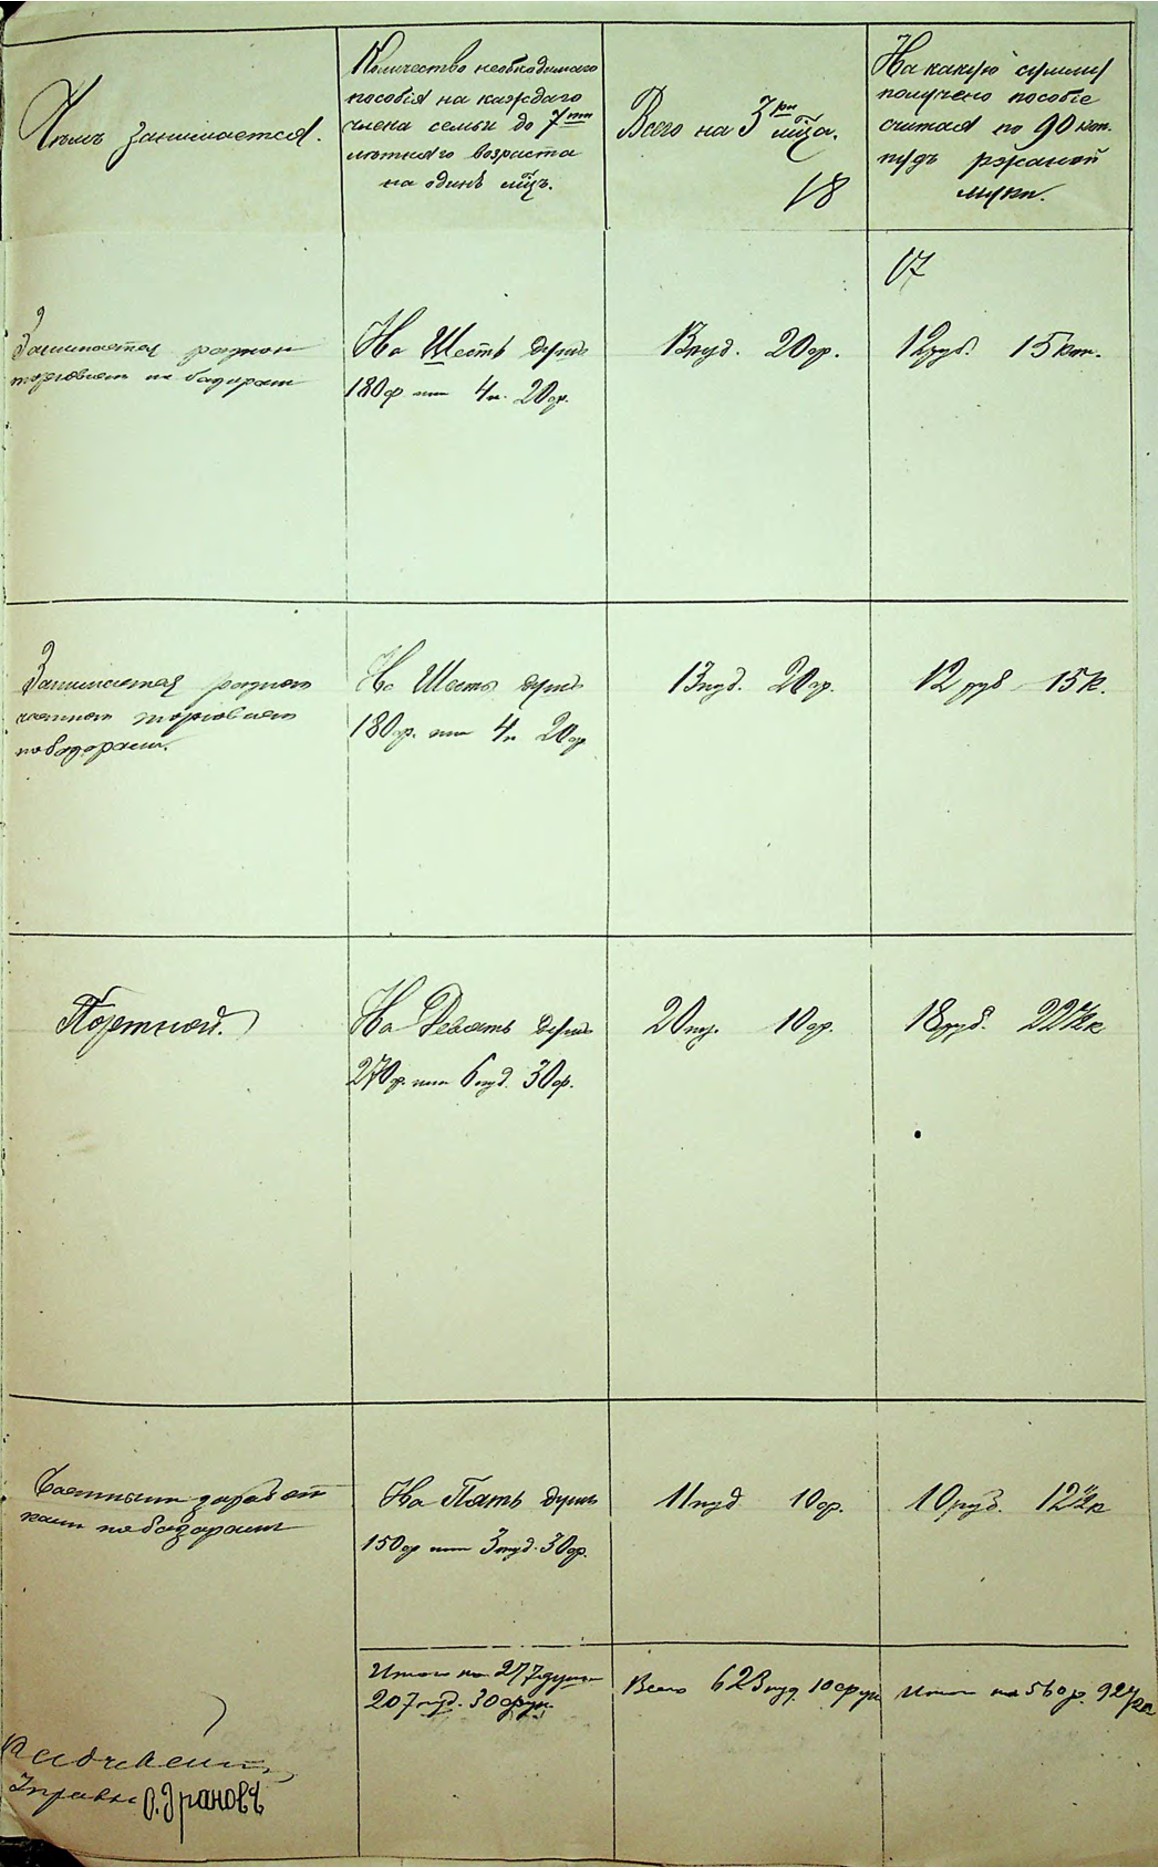 Чѣмъ занимается.
Количество необходимаго
пособія на каждаго
члена семьи до 7ми
лѣтняго возраста
на одинъ мѣсц.
Всего на 3ри мѣца.
18
На какую сумму
получено пособіе
считая по 90 коп.
пудъ ржаной
муки.
17
Занимается разною
торговлею по базарам
На Шесть душъ
180ф. или 4п. 20ф.
13пуд. 20ф.
12руб. 15коп.
Занимается разною
торговлею
по базарам.
На Шесть душъ
180ф. или 4п 20ф
13пуд. 20ф.
12 руб 15к.
Портной.
На Девять душъ
270ф. или 6пуд. 30ф.
20пуд. 10ф.
18руб. 22½к
заработ
ками по базарам
На Пять душъ
150ф или 3пуд. 30ф.
11пуд 10ф.
10руб. 12½к
Итого на 277душъ
207пуд. 30фун.
Всего 623пуд. 10фун
Итого на 560р. 92½к
Управы